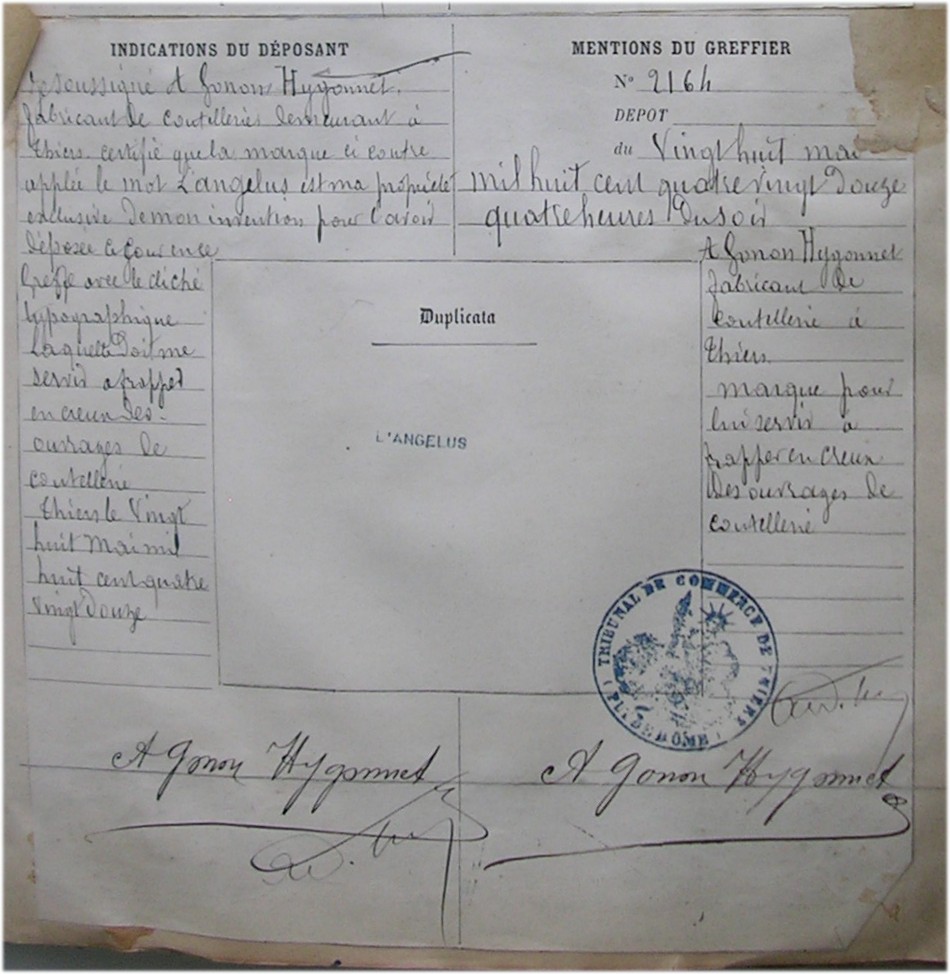 INDICATIONS DU DÉPOSANT
Je soussigné A Gonon Hygonnet,
fabricant de coutelleries demeurant à
Thiers certifie que la marque ci contre
applée le mot L'angelus est ma propriété
exclusive de mon invention pour l'avoir
déposée le jour
Greffe avec le cliché
typographique
Laquelle doit me
servir a frapper
en creux des
ouvrages de
coutellerie
Thiers le Vingt
huit Mai mil
huit cent quatre
Vingt Douze
MENTIONS DU GREFFIER
N° 2164
DEPOT
du Vingt huit mai
mil huit cent quatre vingt Douze
quatre heures Du soir
A Gonon Hygonnet
fabricant de
Coutellerie à
Thiers
marque pour
lui servir à
frapper en creux
Des ouvrages de
coutellerie
Duplicata
L'ANGELUS
TRIBUNAL DE COMMERCE DE THIERS
(PUY DE DOME)
A Gonon Hygonnet
A Gonon Hygonnet